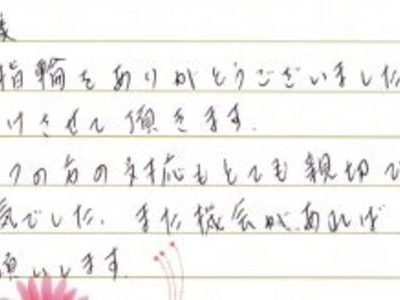 様
指輪をありがとうございました
けさせて頂きます.
フの方の対応もとても親切で
気でした. また機会があれば
願いします.